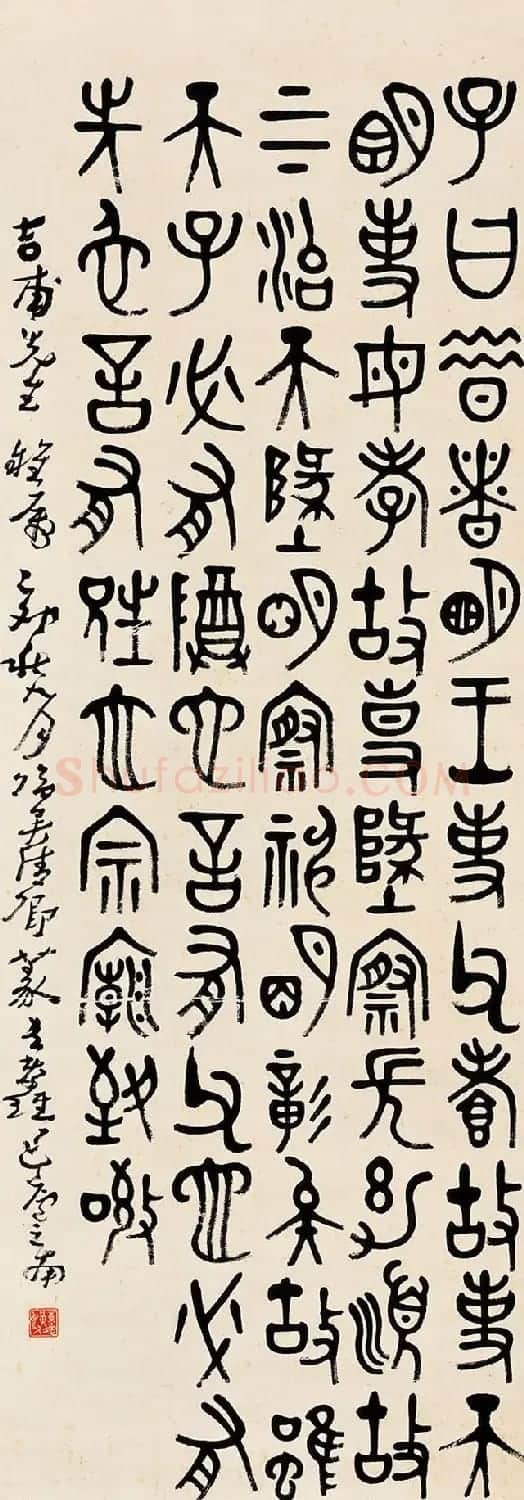 子曰昔者明王事父孝故事天
明事母孝故事地察長幼順故
上下治天地明察神明彰矣故雖
天子必有尊也言有父也必有
先也言有兄也宗廟致敬
吉甫先生雅屬 卯秋九月臨吳清卿篆
Shufaziliao.COM